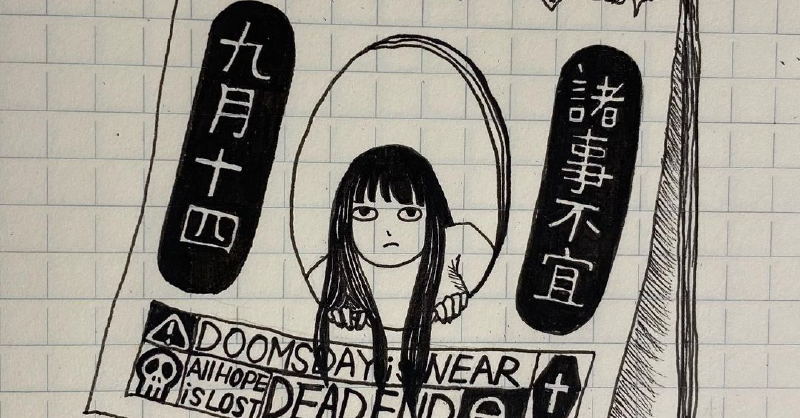 九月十四
諸事不宜
DOOMSDAY is NEAR
All HOPE
is LOST
DEAD END